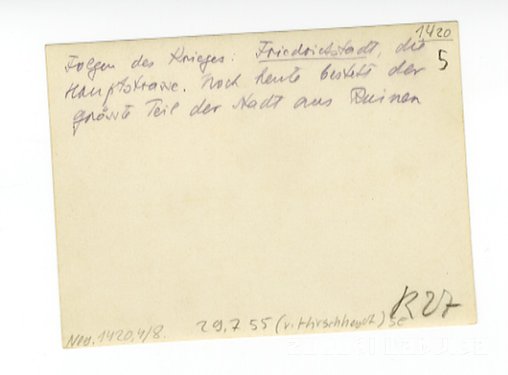 1420
5
Folgen des Krieges: Friedrichstadt, die
Hauptstrasse. Noch heute besteht der
grösste Teil der Stadt aus Ruinen
R27
Neg. 1420,4/8. 29.7 55 (v. Hirschheydt) SE